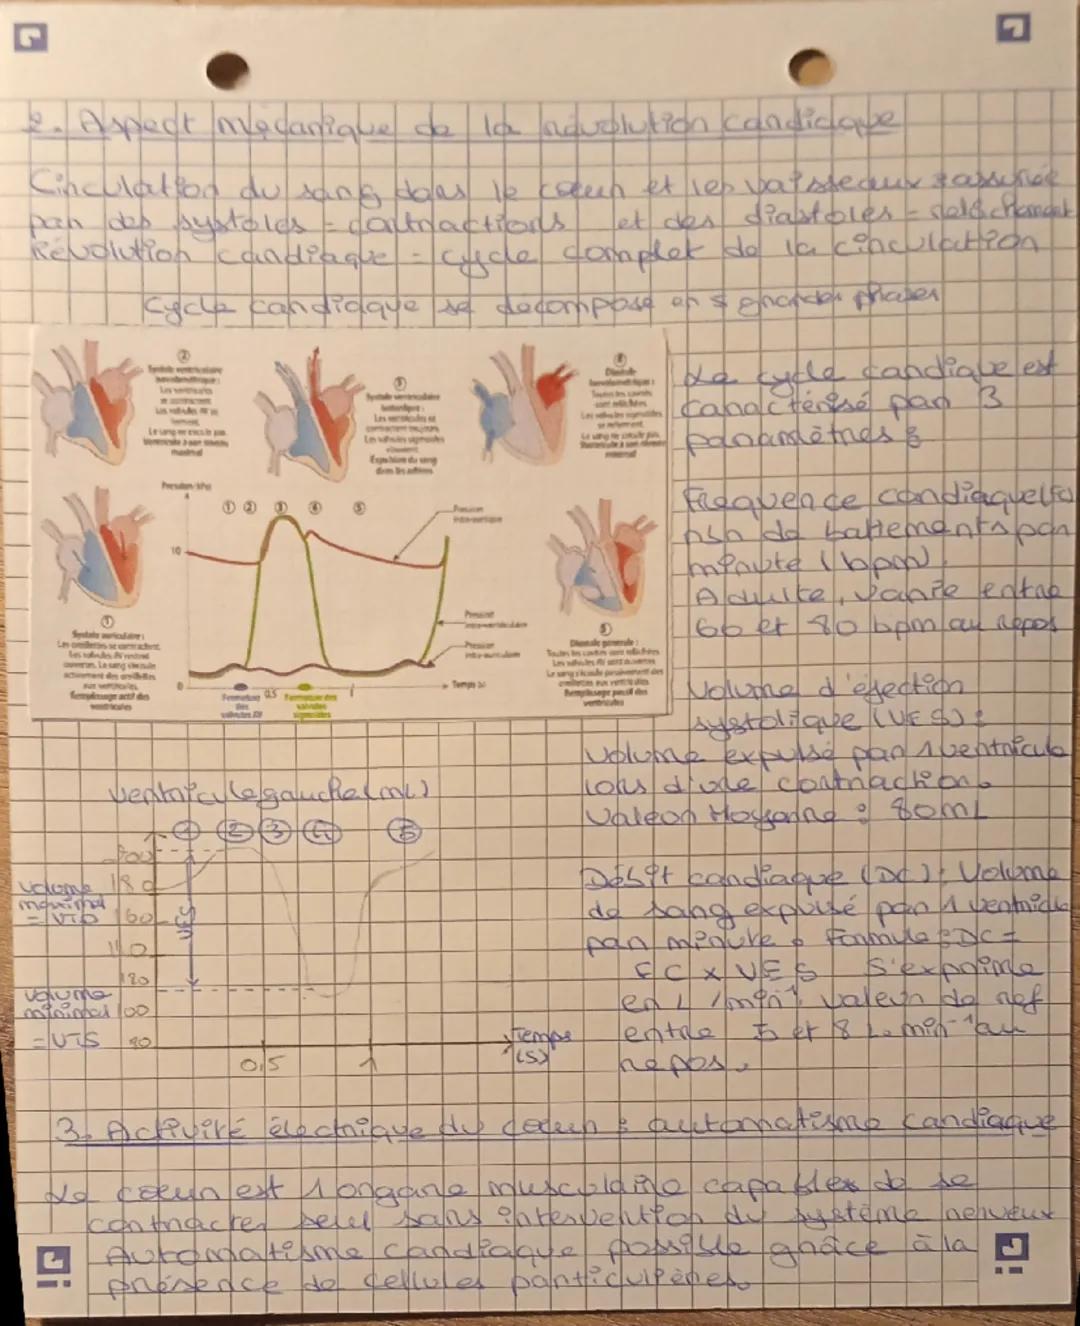 2. Aspect mécanique de la révolution cardiaque
Circulation du sang dans le cœur et les vaisseaux assurée
par des systoles = contractions et des diastoles = relâchement
Révolution cardiaque = cycle complet de la circulation
Cycle cardiaque se décompose en 5 grandes phases
②
Systole ventriculaire
isovolumétrique :
Les ventricules
se contractent
Les valvules AV se
ferment.
Le sang ne circule pas.
Ventricule à son niveau
maximal
③
Systole ventriculaire
isotonique :
Les ventricules se
contractent toujours
Les valvules sigmoïdes
s'ouvrent
Expulsion du sang
dans les artères
④
Diastole
isovolumétrique :
Toutes les cavités
sont relâchées
Les valvules sigmoïdes
se referment.
Le sang ne circule pas.
Ventricule à son niveau
minimal
Pression (kPa)
① ② ③ ④ ⑤
10
0
0.5
1
Temps (s)
Pression
intra-aortique
Pression
intra-ventriculaire
Pression
intra-auriculaire
Fermeture
des
valvules AV
Fermeture des
valvules
sigmoïdes
①
Systole auriculaire :
Les oreillettes se contractent.
Les valvules AV restent
ouvertes. Le sang circule
activement des oreillettes
aux ventricules.
Remplissage actif des
ventricules
⑤
Diastole générale :
Toutes les cavités sont relâchées
Les valvules AV sont ouvertes
Le sang circule passivement des
oreillettes aux ventricules
Remplissage passif des
ventricules
Le cycle cardiaque est
caractérisé par 3
paramètres :
Fréquence cardiaque (fc)
nbn de battements par
minute (bpm)
Adulte, varie entre
60 et 80 bpm au repos
Volume d'éjection
systolique (VES) :
Volume expulsé par 1 ventricule
lors d'une contraction.
Valeur Moyenne : 80mL
Débit cardiaque (DC) : Volume
de sang expulsé par 1 ventricule
par minute. Formule : DC =
FC x VES S'exprime
en L /min⁻¹ valeur de ref
entre 5 et 8 L.min⁻¹ au
repos.
Ventricule gauche (mL)
① ② ③ ④ ⑤
200
180
160
140
120
100
80
volume
maximal
= VTD
VES
volume
minimal
= VTS
0,5
1
Temps
(s)
3. Activité électrique du cœur : automatisme cardiaque
Le cœur est 1 organe musculaire capables de se
contracter seul sans intervention du système nerveux
Automatisme cardiaque possible grâce à la
présence de cellules particulières.